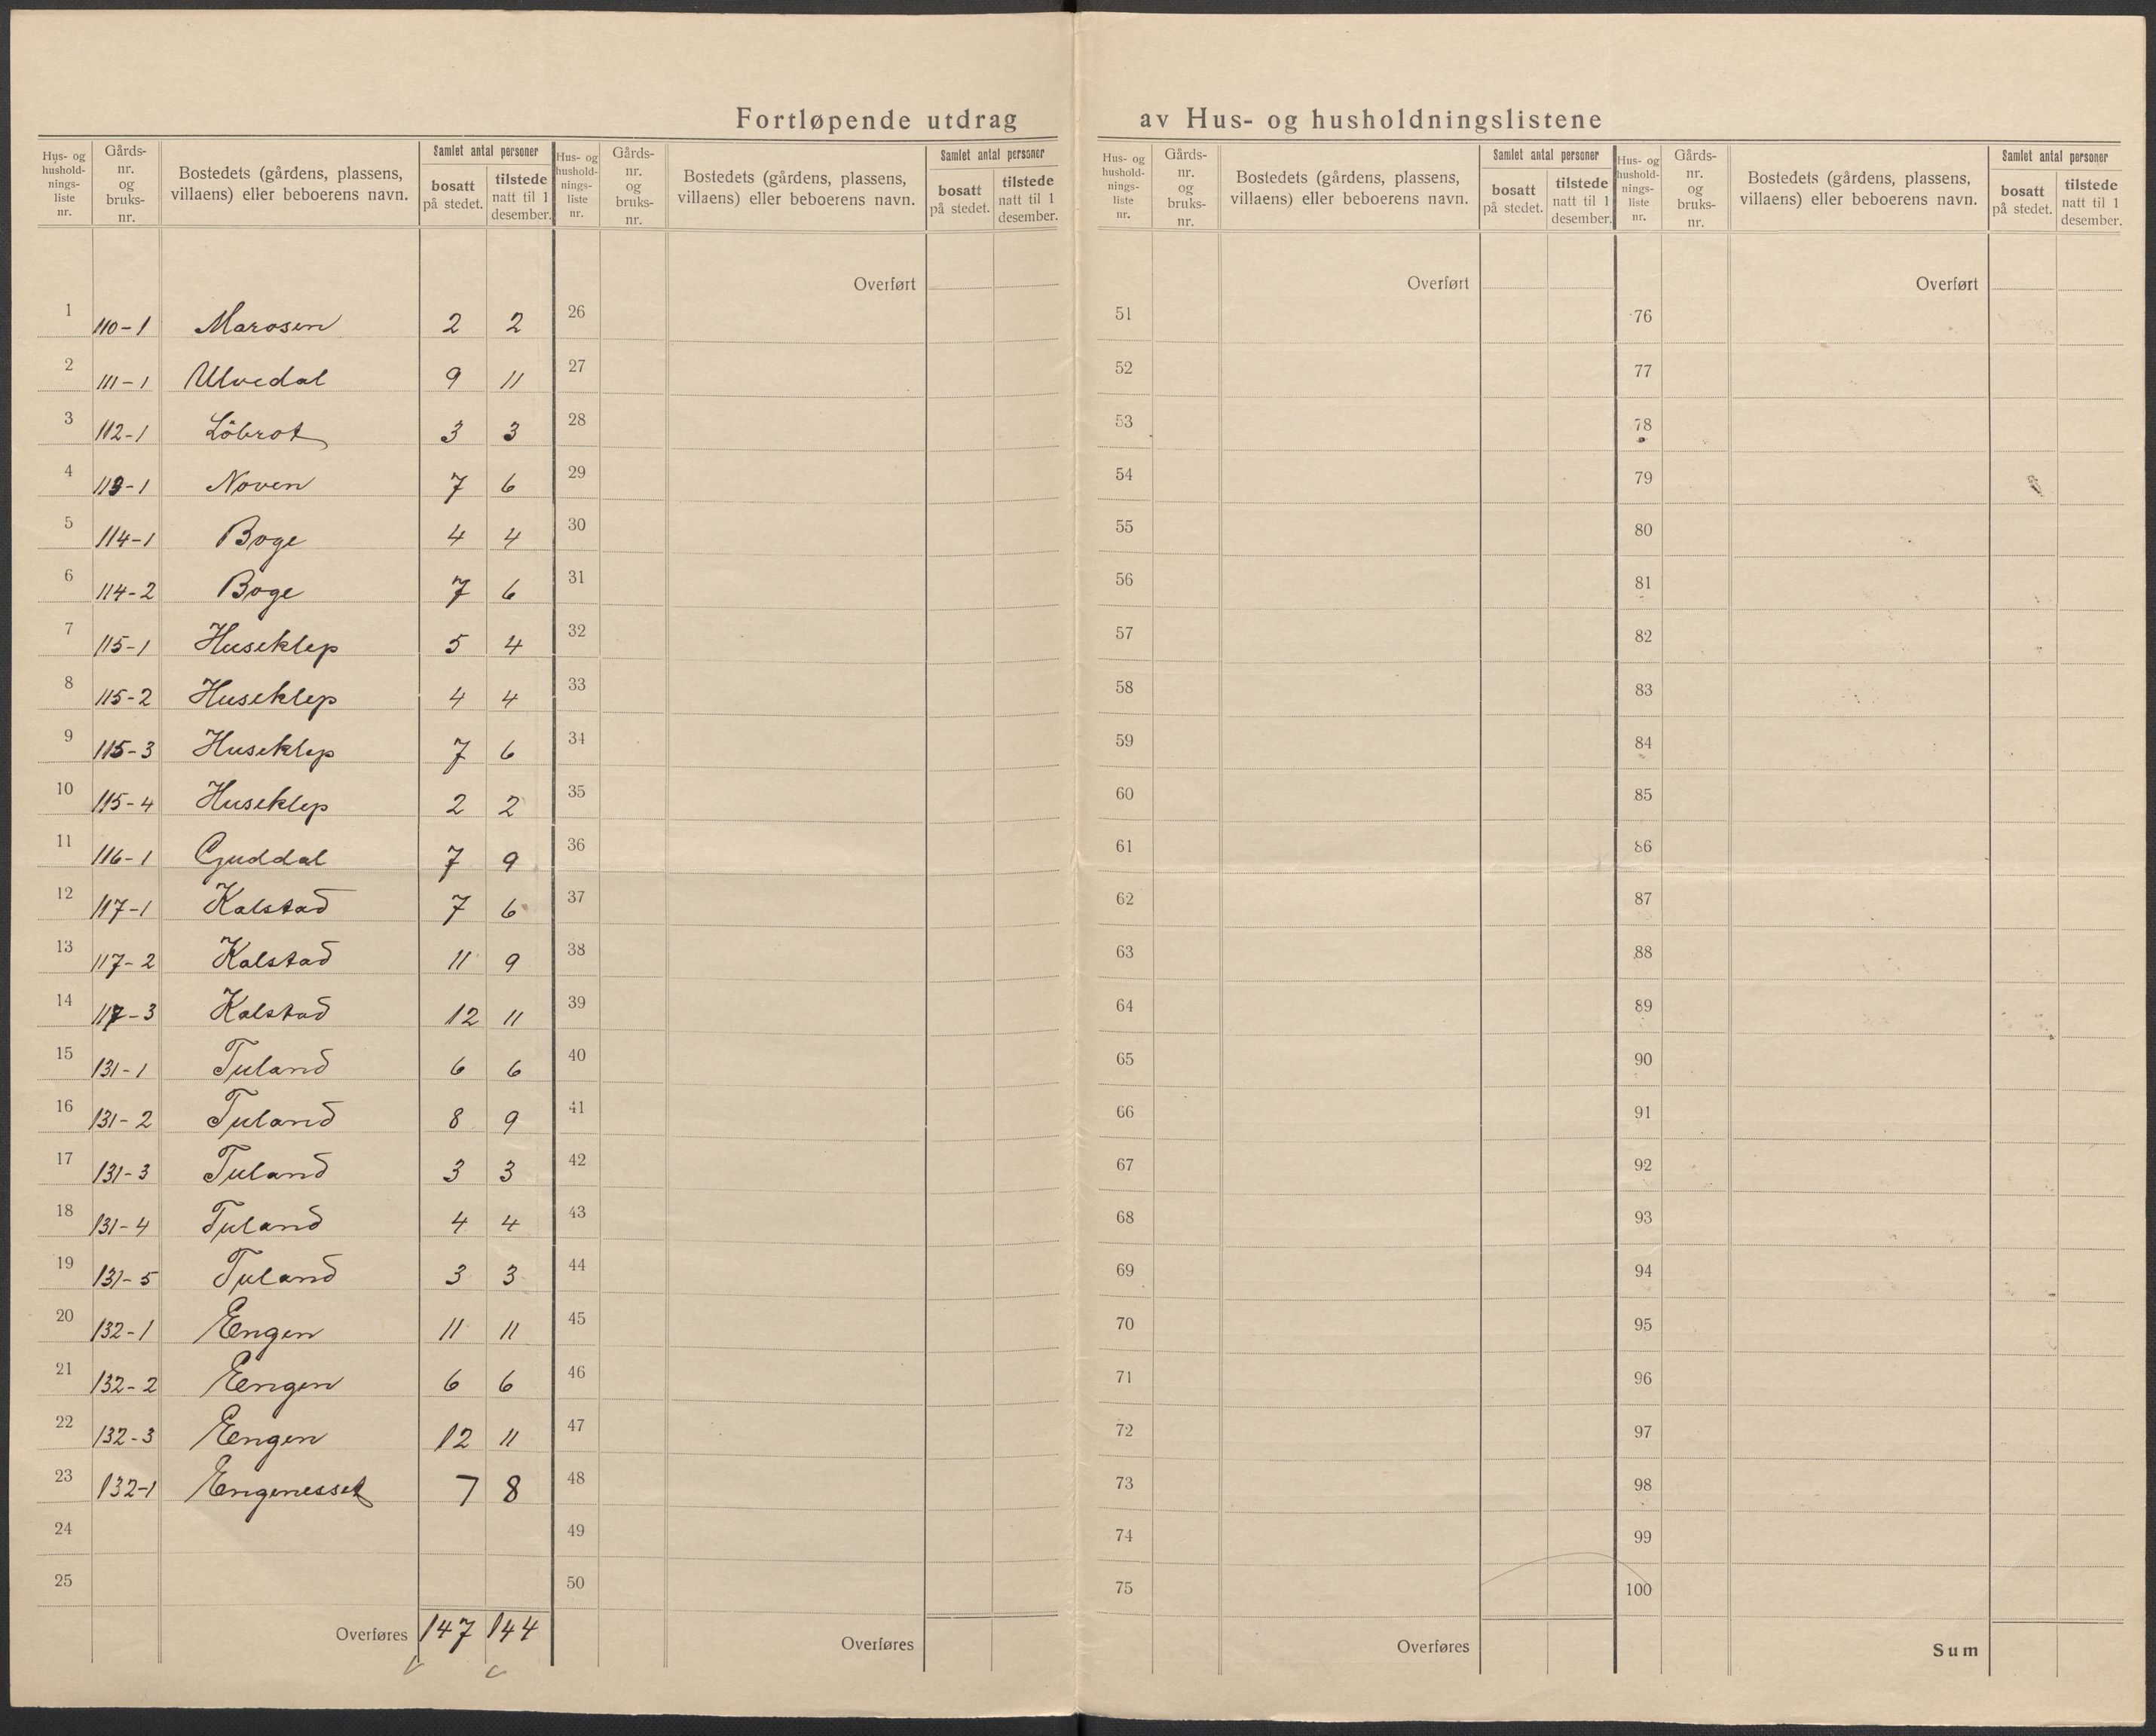 Fortløpende utdrag av Hus- og husholdningslistene
Hus- og hushold-nings-liste nr. Gårds-nr. og bruks-nr. Bostedets (gårdens, plassens, villaens) eller beboerens navn. Samlet antal personer bosatt på stedet. tilstede natt til 1 desember.
1 110-1 Marosen 2 2
2 111-1 Ulvedal 9 11
3 112-1 Löbrot 3 3
4 113-1 Noven 7 6
5 114-1 Boge 4 4
6 114-2 Boge 7 6
7 115-1 Huseklep 5 4
8 115-2 Huseklep 4 4
9 115-3 Huseklep 7 6
10 115-4 Huseklep 2 2
11 116-1 Guddal 7 9
12 117-1 Kalstad 7 6
13 117-2 Kalstad 11 9
14 117-3 Kalstad 12 11
15 131-1 Tuland 6 6
16 131-2 Tuland 8 9
17 131-3 Tuland 3 3
18 131-4 Tuland 4 4
19 131-5 Tuland 3 3
20 132-1 Engen 11 11
21 132-2 Engen 6 6
22 132-3 Engen 12 11
23 132-1 Engenesset 7 8
24
25
Overføres 147 144
Hus- og hushold-nings-liste nr. Gårds-nr. og bruks-nr. Bostedets (gårdens, plassens, villaens) eller beboerens navn. Samlet antal personer bosatt på stedet. tilstede natt til 1 desember.
Overført
26
27
28
29
30
31
32
33
34
35
36
37
38
39
40
41
42
43
44
45
46
47
48
49
50
Overføres
Hus- og hushold-nings-liste nr. Gårds-nr. og bruks-nr. Bostedets (gårdens, plassens, villaens) eller beboerens navn. Samlet antal personer bosatt på stedet. tilstede natt til 1 desember.
Overført
51
52
53
54
55
56
57
58
59
60
61
62
63
64
65
66
67
68
69
70
71
72
73
74
75
Overføres
Hus- og hushold-nings-liste nr. Gårds-nr. og bruks-nr. Bostedets (gårdens, plassens, villaens) eller beboerens navn. Samlet antal personer bosatt på stedet. tilstede natt til 1 desember.
Overført
76
77
78
79
80
81
82
83
84
85
86
87
88
89
90
91
92
93
94
95
96
97
98
99
100
Sum